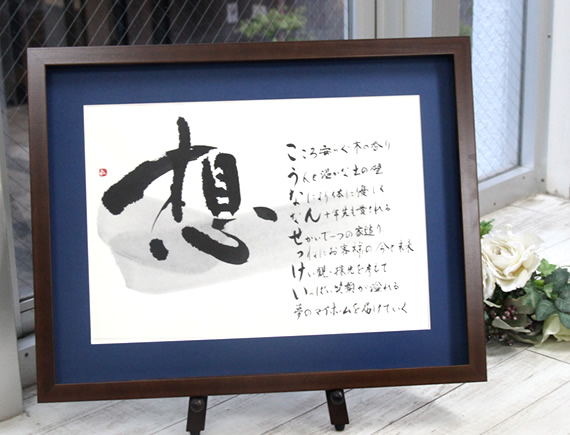 想
こころ安らぐ木の香り
うんと温かな土の壁
なにより体に優しく
なん十年先も愛される
せかいで一つの家造り
つねにお客様の今と未来
けい観・採光を
いっぱい笑顔が溢れる
夢のマイホームを届けていく